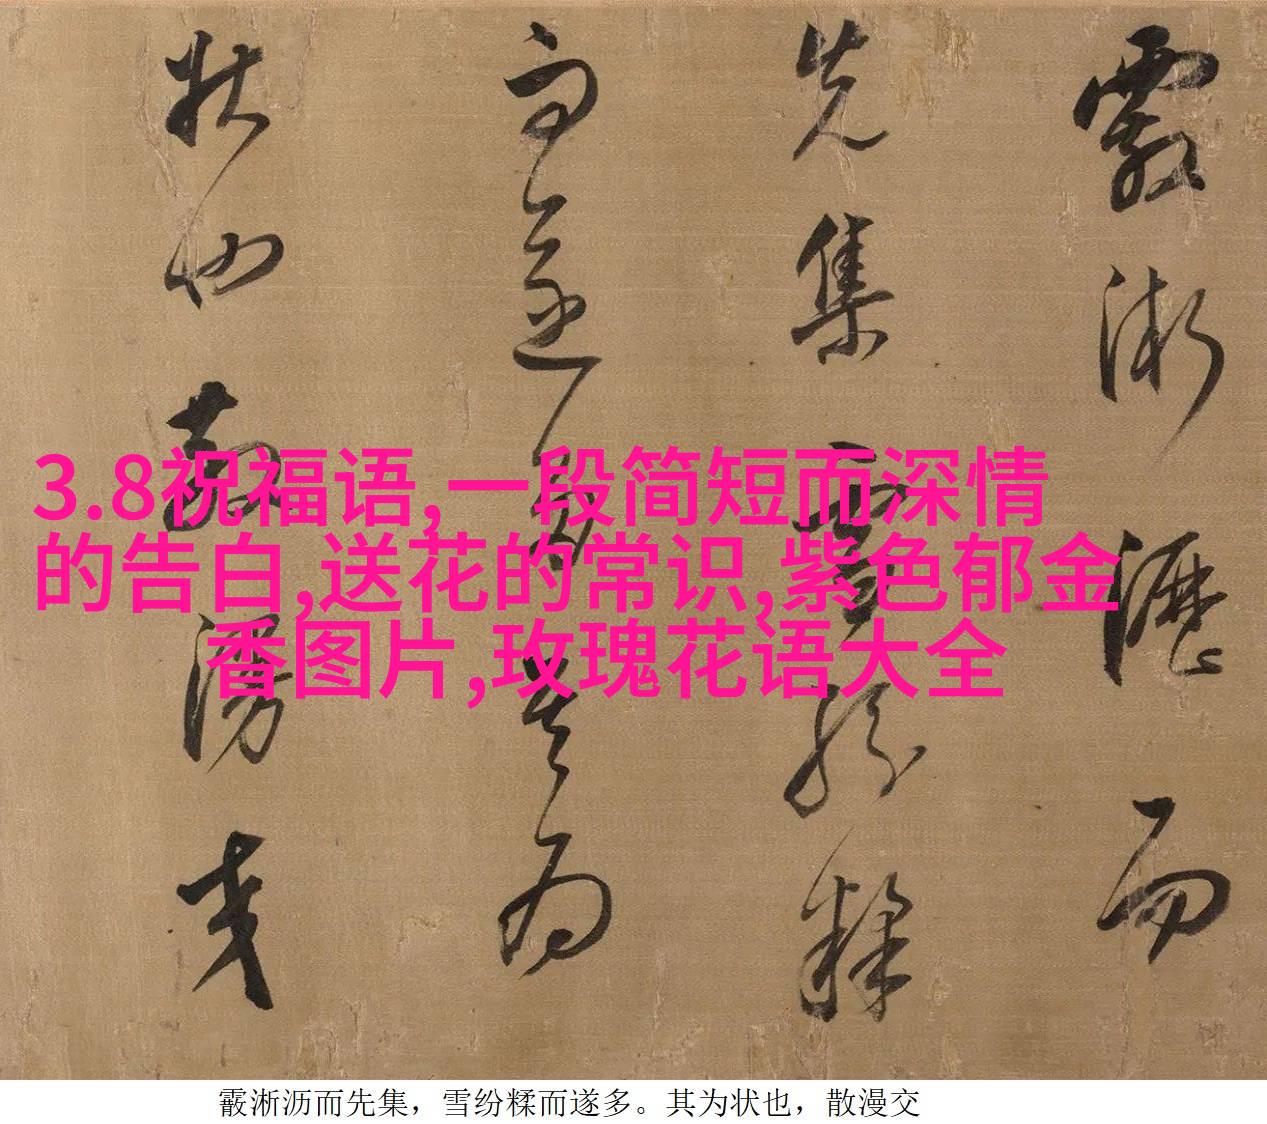 霰淅瀝而
先集雪紛糅
而遂多其為
狀也散漫交
3.8祝福语,一段简短而深情
的告白,送花的常识,紫色郁金
香图片,玫瑰花语大全
霰淅沥而先集，雪纷糅而遂多。其为状也，散漫交